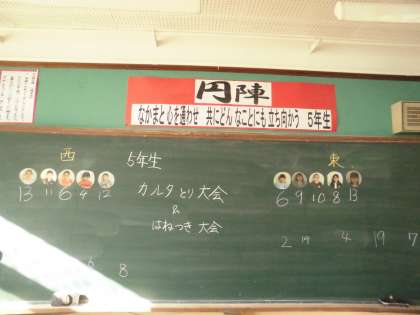 円陣
なかまと心を通わせ 共にどんなことにも立ち向かう 5年生
西 5年生 東
13 11 6 4 12
カルタとり大会
&
はねつき 大会
6 9 10 8 13
2 19 4 19 7
8